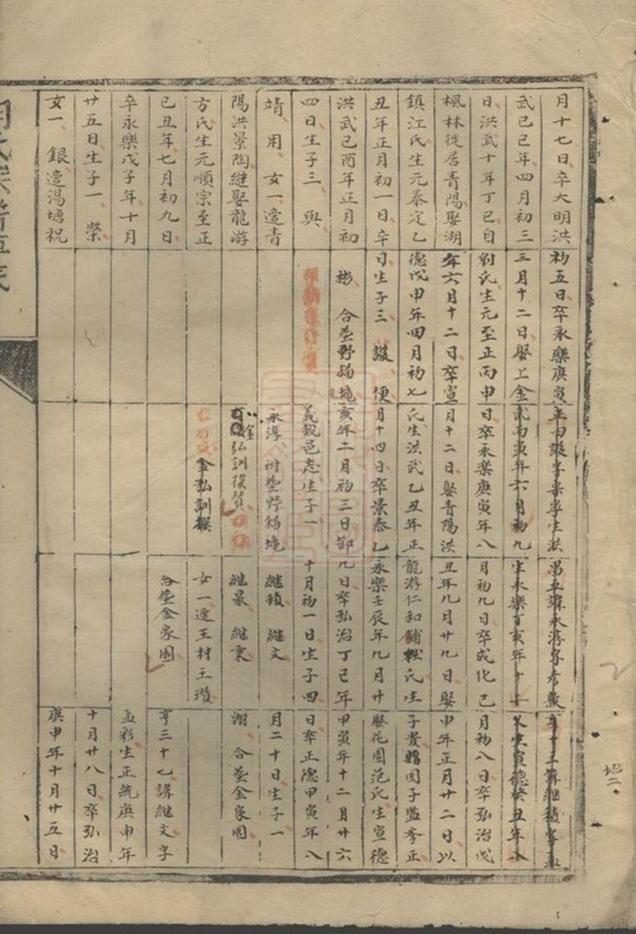 月十七日卒大明洪
武己巳年四月初三
日洪武十年丁巳自
楓林徙居青陽娶湖
鎮江氏生元泰定乙
丑年正月初一日卒
洪武己酉年正月初
四日生子三 與
靖 用 女一適青
陽洪景陶繼娶龍游
方氏生元順宗至正
己丑年七月初九日
卒永樂戊子年十月
廿五日生子一 榮
女一 銀適湯塘祝
初五日卒永樂庚寅
三月十二日娶上金
尉氏生元至正丙申
年六月十二日卒宣
德戊申年四月初七
日生子三 諼 便
彬 合塟野猫境
年丙
武丙寅年六月初九
日卒永樂庚寅年八
月十二日娶青陽洪
氏生洪武乙丑年正
月十四日卒景泰乙
亥年二月初三日鄞
義銳邑志生子一
永淳 祔塟野猫境
弘訓撰
金弘訓撰
生永樂丁亥年十
月初九日卒成化己
丑年九月廿九日娶
龍游仁和鋪 氏生
永樂壬辰年九月廿
九日卒弘治丁巳年
十月初一日生子四
繼積 繼文
繼景 繼東
女一適王村王瓚
合塟金家園
生宣德癸丑年
月初八日卒弘治戊
申年正月廿二日以
子貴贈國子監學正
娶花園范氏生宣德
甲寅年十二月廿六
日卒正德甲寅年八
月二十日生子一
湖 合塟金家園
亨三十七講繼文字
孟彩生正統庚申年
十月廿八日卒弘治
庚申年十月廿五日
地二